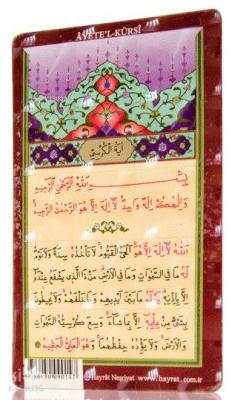 ÂYETE'L-KÜRSÎ
اٰيَةُ الْكُرْسِىِّ
بِسْمِ اللّٰهِ الرَّحْمٰنِ الرَّحِيمِ
وَاِلٰهُكُمْ اِلٰهٌ وَاحِدٌ لَٓا اِلٰهَ اِلَّا هُوَ الرَّحْمٰنُ الرَّحِيمُ
اَللّٰهُ لَٓا اِلٰهَ اِلَّا هُوَ اَلْحَىُّ الْقَيُّومُ لَا تَأْخُذُهُ سِنَةٌ وَلَا نَوْمٌ
لَهُ مَا فِى السَّمٰوَاتِ وَمَا فِى الْاَرْضِ مَنْ ذَا الَّذِى يَشْفَعُ عِنْدَهُ
اِلَّا بِاِذْنِهِ يَعْلَمُ مَا بَيْنَ اَيْدِيهِمْ وَمَا خَلْفَهُمْ وَلَا يُحِيطُونَ
بِشَىْءٍ مِنْ عِلْمِهِ اِلَّا بِمَا شَٓاءَ وَسِعَ كُرْسِيُّهُ السَّمٰوَاتِ
وَالْاَرْضَ وَلَا يَؤُدُهُ حِفْظُهُمَا وَهُوَ الْعَلِىُّ الْعَظِيمُ
Hayrât Neşriyat www.hayrat.com.tr